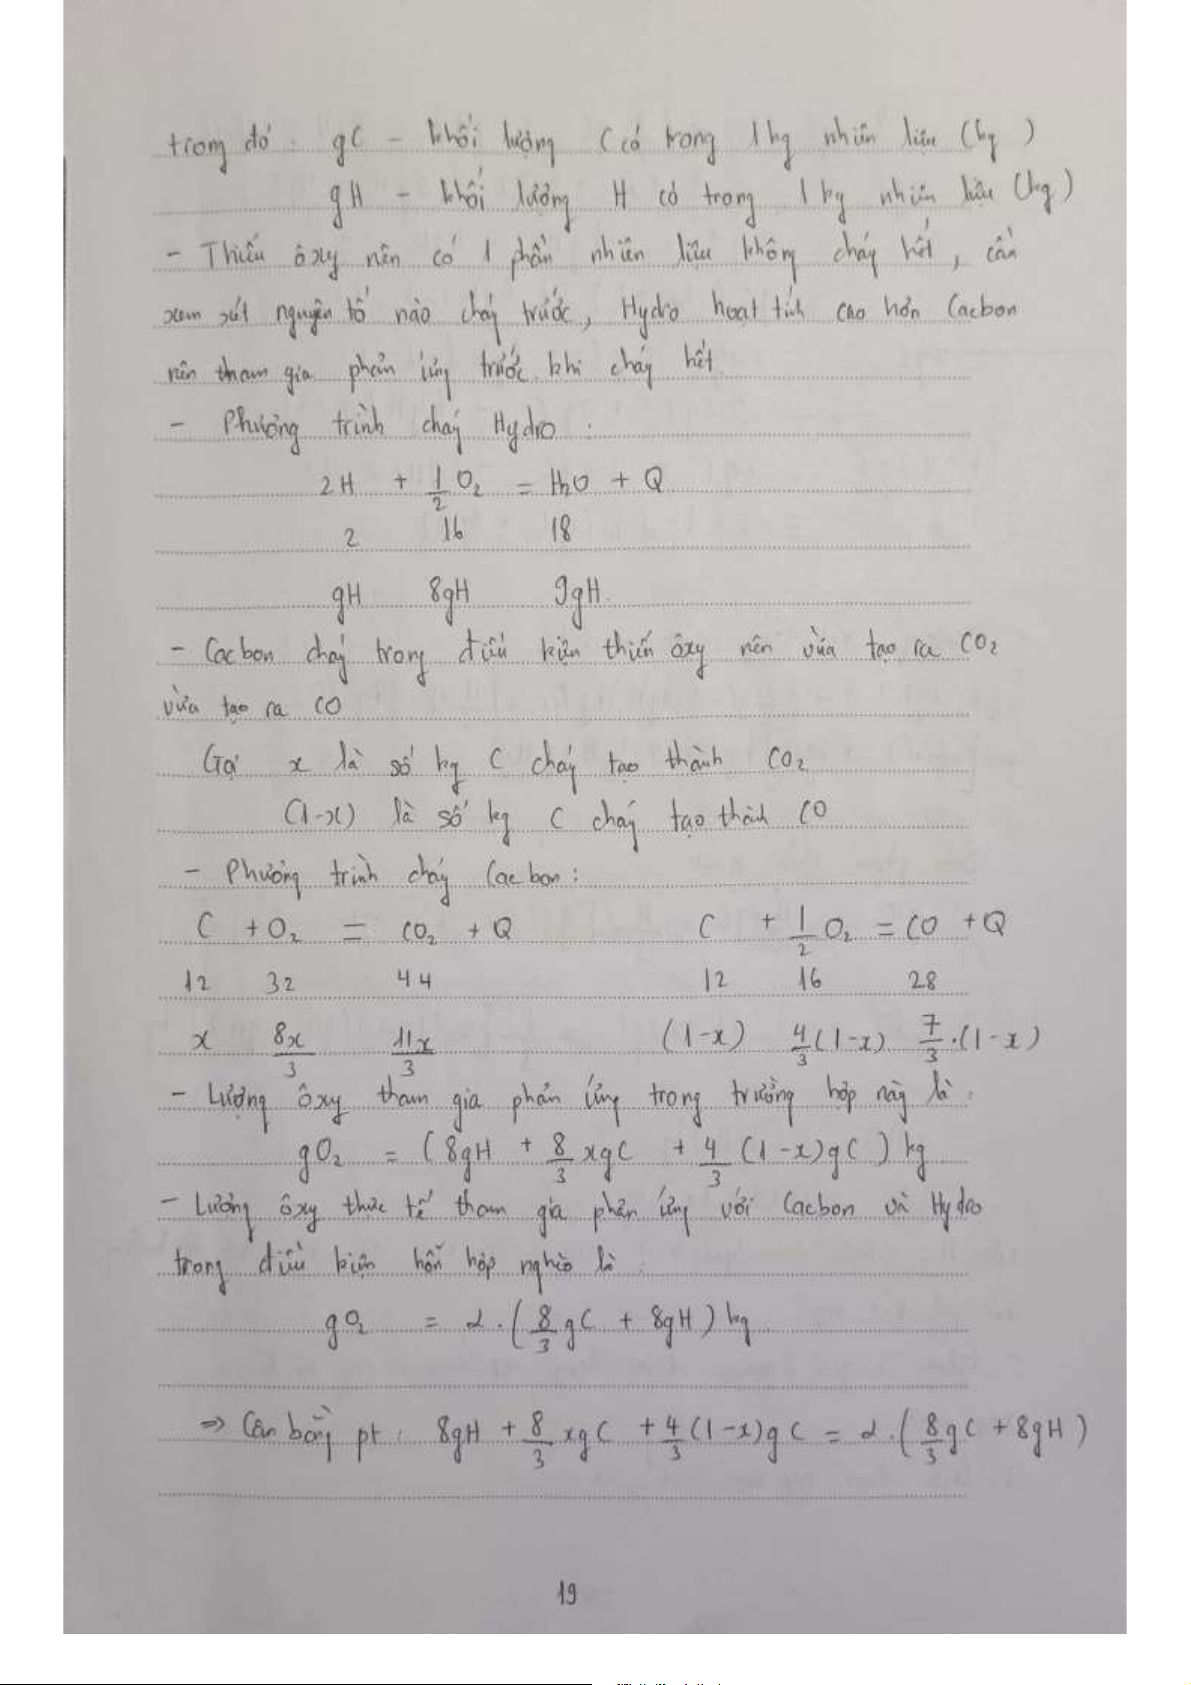 trong đó : gC - khối lượng C có trong 1 kg nhiên liệu (kg)
gH - khối lượng H có trong 1 kg nhiên liệu (kg)
- Thiếu ôxy nên có 1 phần nhiên liệu không cháy hết, cần
xem xét nguyên tố nào cháy trước, Hydro hoạt tính cao hơn Cacbon
nên tham gia phản ứng trước khi cháy hết
- Phương trình cháy Hydro :
2H + 1/2 O₂ = H₂O + Q
2 16 18
gH 8gH 9gH
- Cacbon cháy trong điều kiện thiếu ôxy nên vừa tạo ra CO₂
vừa tạo ra CO
Gọi x là số kg C cháy tạo thành CO₂
(1-x) là số kg C cháy tạo thành CO
- Phương trình cháy Cacbon :
C + O₂ = CO₂ + Q C + 1/2 O₂ = CO + Q
12 32 44 12 16 28
x 8x/3 11x/3 (1-x) 4/3 (1-x) 7/3 . (1-x)
- Lượng ôxy tham gia phản ứng trong trường hợp này là :
gO₂ = (8gH + 8/3 xgC + 4/3 (1-x)gC) kg
- Lượng ôxy thực tế tham gia phản ứng với Cacbon và Hydro
trong điều kiện hỗn hợp nghèo là :
gO₂ = α . (8/3 gC + 8gH) kg
⇒ Cân bằng pt : 8gH + 8/3 xgC + 4/3 (1-x)gC = α . (8/3 gC + 8gH)
19